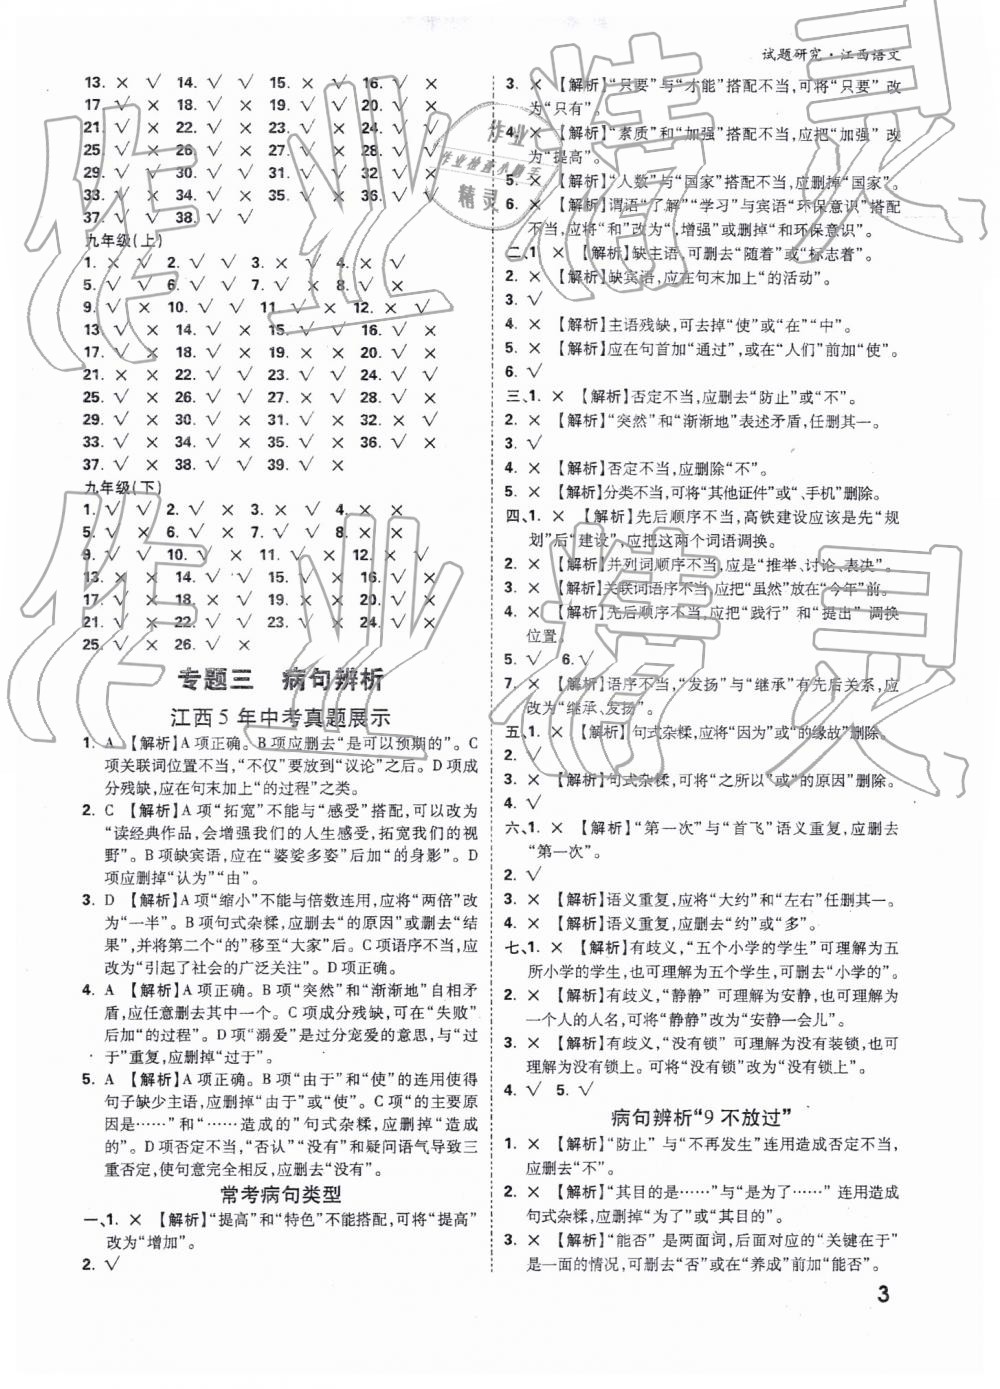 试题研究·江西语文
13. × √ 14. √ √ 15. × × 16. × √
17. √ × 18. × √ 19. √ √ 20. √ ×
21. √ × 22. √ × 23. × √ 24. √ √
25. √ √ 26. √ × 27. × √ 28. √ √
29. √ √ 30. √ √ 31. √ × 32. √ ×
33. × √ 34. × √ 35. √ × 36. √ ×
37. √ √ 38. √ √
九年级(上)
1. × √ 2. √ √ 3. × √ 4. × √
5. √ √ 6. √ √ 7. √ × 8. √ ×
9. √ × 10. √ √ 11. √ √ 12. × √
13. √ × 14. √ × 15. √ √ 16. √ ×
17. √ × 18. √ × 19. × × 20. √ √
21. × × 22. √ √ 23. √ √ 24. √ √
25. √ × 26. √ √ 27. × √ 28. √ ×
29. √ × 30. √ × 31. √ √ 32. × √
33. √ × 34. √ × 35. × √ 36. √ ×
37. √ × 38. √ √ 39. √ ×
九年级(下)
1. √ √ 2. √ × 3. × √ 4. × ×
5. √ × 6. √ × 7. √ √ 8. × √
9. √ √ 10. √ × 11. √ × 12. √ ×
13. × × 14. √ √ 15. √ × 16. √ ×
17. √ × 18. √ × 19. × √ 20. √ √
21. √ × 22. √ √ 23. √ × 24. √ ×
25. √ × 26. √ ×
专题三 病句辨析
江西 5 年中考真题展示
1. A 【解析】A 项正确。B 项应删去“是可以预期的”。C
项关联词位置不当,“不仅”要放到“议论”之后。D 项成
分残缺,应在句末加上“的过程”之类。
2. C 【解析】A 项“拓宽”不能与“感受”搭配,可以改为
“读经典作品,会增强我们的人生感受,拓宽我们的视
野”。B 项缺宾语,应在“婆娑多姿”后加“的身影”。D
项应删掉“认为”“由”。
3. D 【解析】A 项“缩小”不能与倍数连用,应将“两倍”改
为“一半”。B 项句式杂糅,应删去“的原因”或删去“结
果”,并将第二个“的”移至“大家”后。C 项语序不当,应
改为“引起了社会的广泛关注”。
4. A 【解析】A 项正确。B 项“突然”和“渐渐地”自相矛
盾,应任意删去其中一个。C 项成分残缺,可在“失败”
后加“的过程”。D 项“溺爱”是过分宠爱的意思,与“过
于”重复,应删掉“过于”。
5. A 【解析】A 项正确。B 项“由于”和“使”的连用使得
句子缺少主语,应删掉“由于”或“使”。C 项“的主要原
因是……”和“……造成的”句式杂糅,应删掉“造成
的”。D 项否定不当,“否认”“没有”和疑问语气导致三
重否定,使句意完全相反,应删去“没有”。
常考病句类型
一、1. × 【解析】“提高”和“特色”不能搭配,可将“提高”
改为“增加”。
2. √
3. × 【解析】“只要”与“才能”搭配不当,可将“只要”改
为“只有”。
4. × 【解析】“素质”和“加强”搭配不当,应把“加强”改
为“提高”。
5. × 【解析】“人数”与“国家”搭配不当,应删掉“国家”。
6. × 【解析】谓语“了解”“学习”与宾语“环保意识”搭配
不当,应将“和”改为“,增强”或删掉“和环保意识”。
二、1. × 【解析】缺主语,可删去“随着”或“标志着”。
2. × 【解析】缺宾语,应在句末加上“的活动”。
3. √
4. × 【解析】主语残缺,可去掉“使”或“在”“中”。
5. × 【解析】应在句首加“通过”,或在“人们”前加“使”。
6. √
三、1. × 【解析】否定不当,应删去“防止”或“不”。
2. × 【解析】“突然”和“渐渐地”表述矛盾,任删其一。
3. √
4. × 【解析】否定不当,应删除“不”。
5. × 【解析】分类不当,可将“其他证件”或“、手机”删除。
四、1. × 【解析】先后顺序不当,高铁建设应该是先“规
划”后“建设”,应把这两个词语调换。
2. × 【解析】并列词顺序不当,应是“推举、讨论、表决”。
3. × 【解析】关联词语序不当,应把“虽然”放在“今年”前。
4. × 【解析】先后顺序不当,应把“践行”和“提出”调换
位置。
5. √ 6. √
7. × 【解析】语序不当,“发扬”与“继承”有先后关系,应
改为“继承、发扬”。
五、1. × 【解析】句式杂糅,应将“因为”或“的缘故”删除。
2. √
3. × 【解析】句式杂糅,可将“之所以”或“的原因”删除。
4. √
六、1. × 【解析】“第一次”与“首飞”语义重复,应删去
“第一次”。
2. √
3. × 【解析】语义重复,应将“大约”和“左右”任删其一。
4. × 【解析】语义重复,应删去“约”或“多”。
七、1. × 【解析】有歧义,“五个小学的学生”可理解为五
所小学的学生,也可理解为五个学生,可删去“小学的”。
2. × 【解析】有歧义,“静静”可理解为安静,也可理解为
一个人的人名,可将“静静”改为“安静一会儿”。
3. × 【解析】有歧义,“没有锁”可理解为没有装锁,也可
理解为没有锁上。可将“没有锁”改为“没有锁上”。
4. √ 5. √
病句辨析“9 不放过”
1. × 【解析】“防止”与“不再发生”连用造成否定不当,
应删去“不”。
2. × 【解析】“其目的是……”与“是为了……”连用造成
句式杂糅,应删掉“为了”或“其目的”。
3. × 【解析】“能否”是两面词,后面对应的“关键在于”
是一面的情况,可删去“否”或在“养成”前加“能否”。
3
作业精灵
作业精灵
作业
作业检查小精灵
精灵